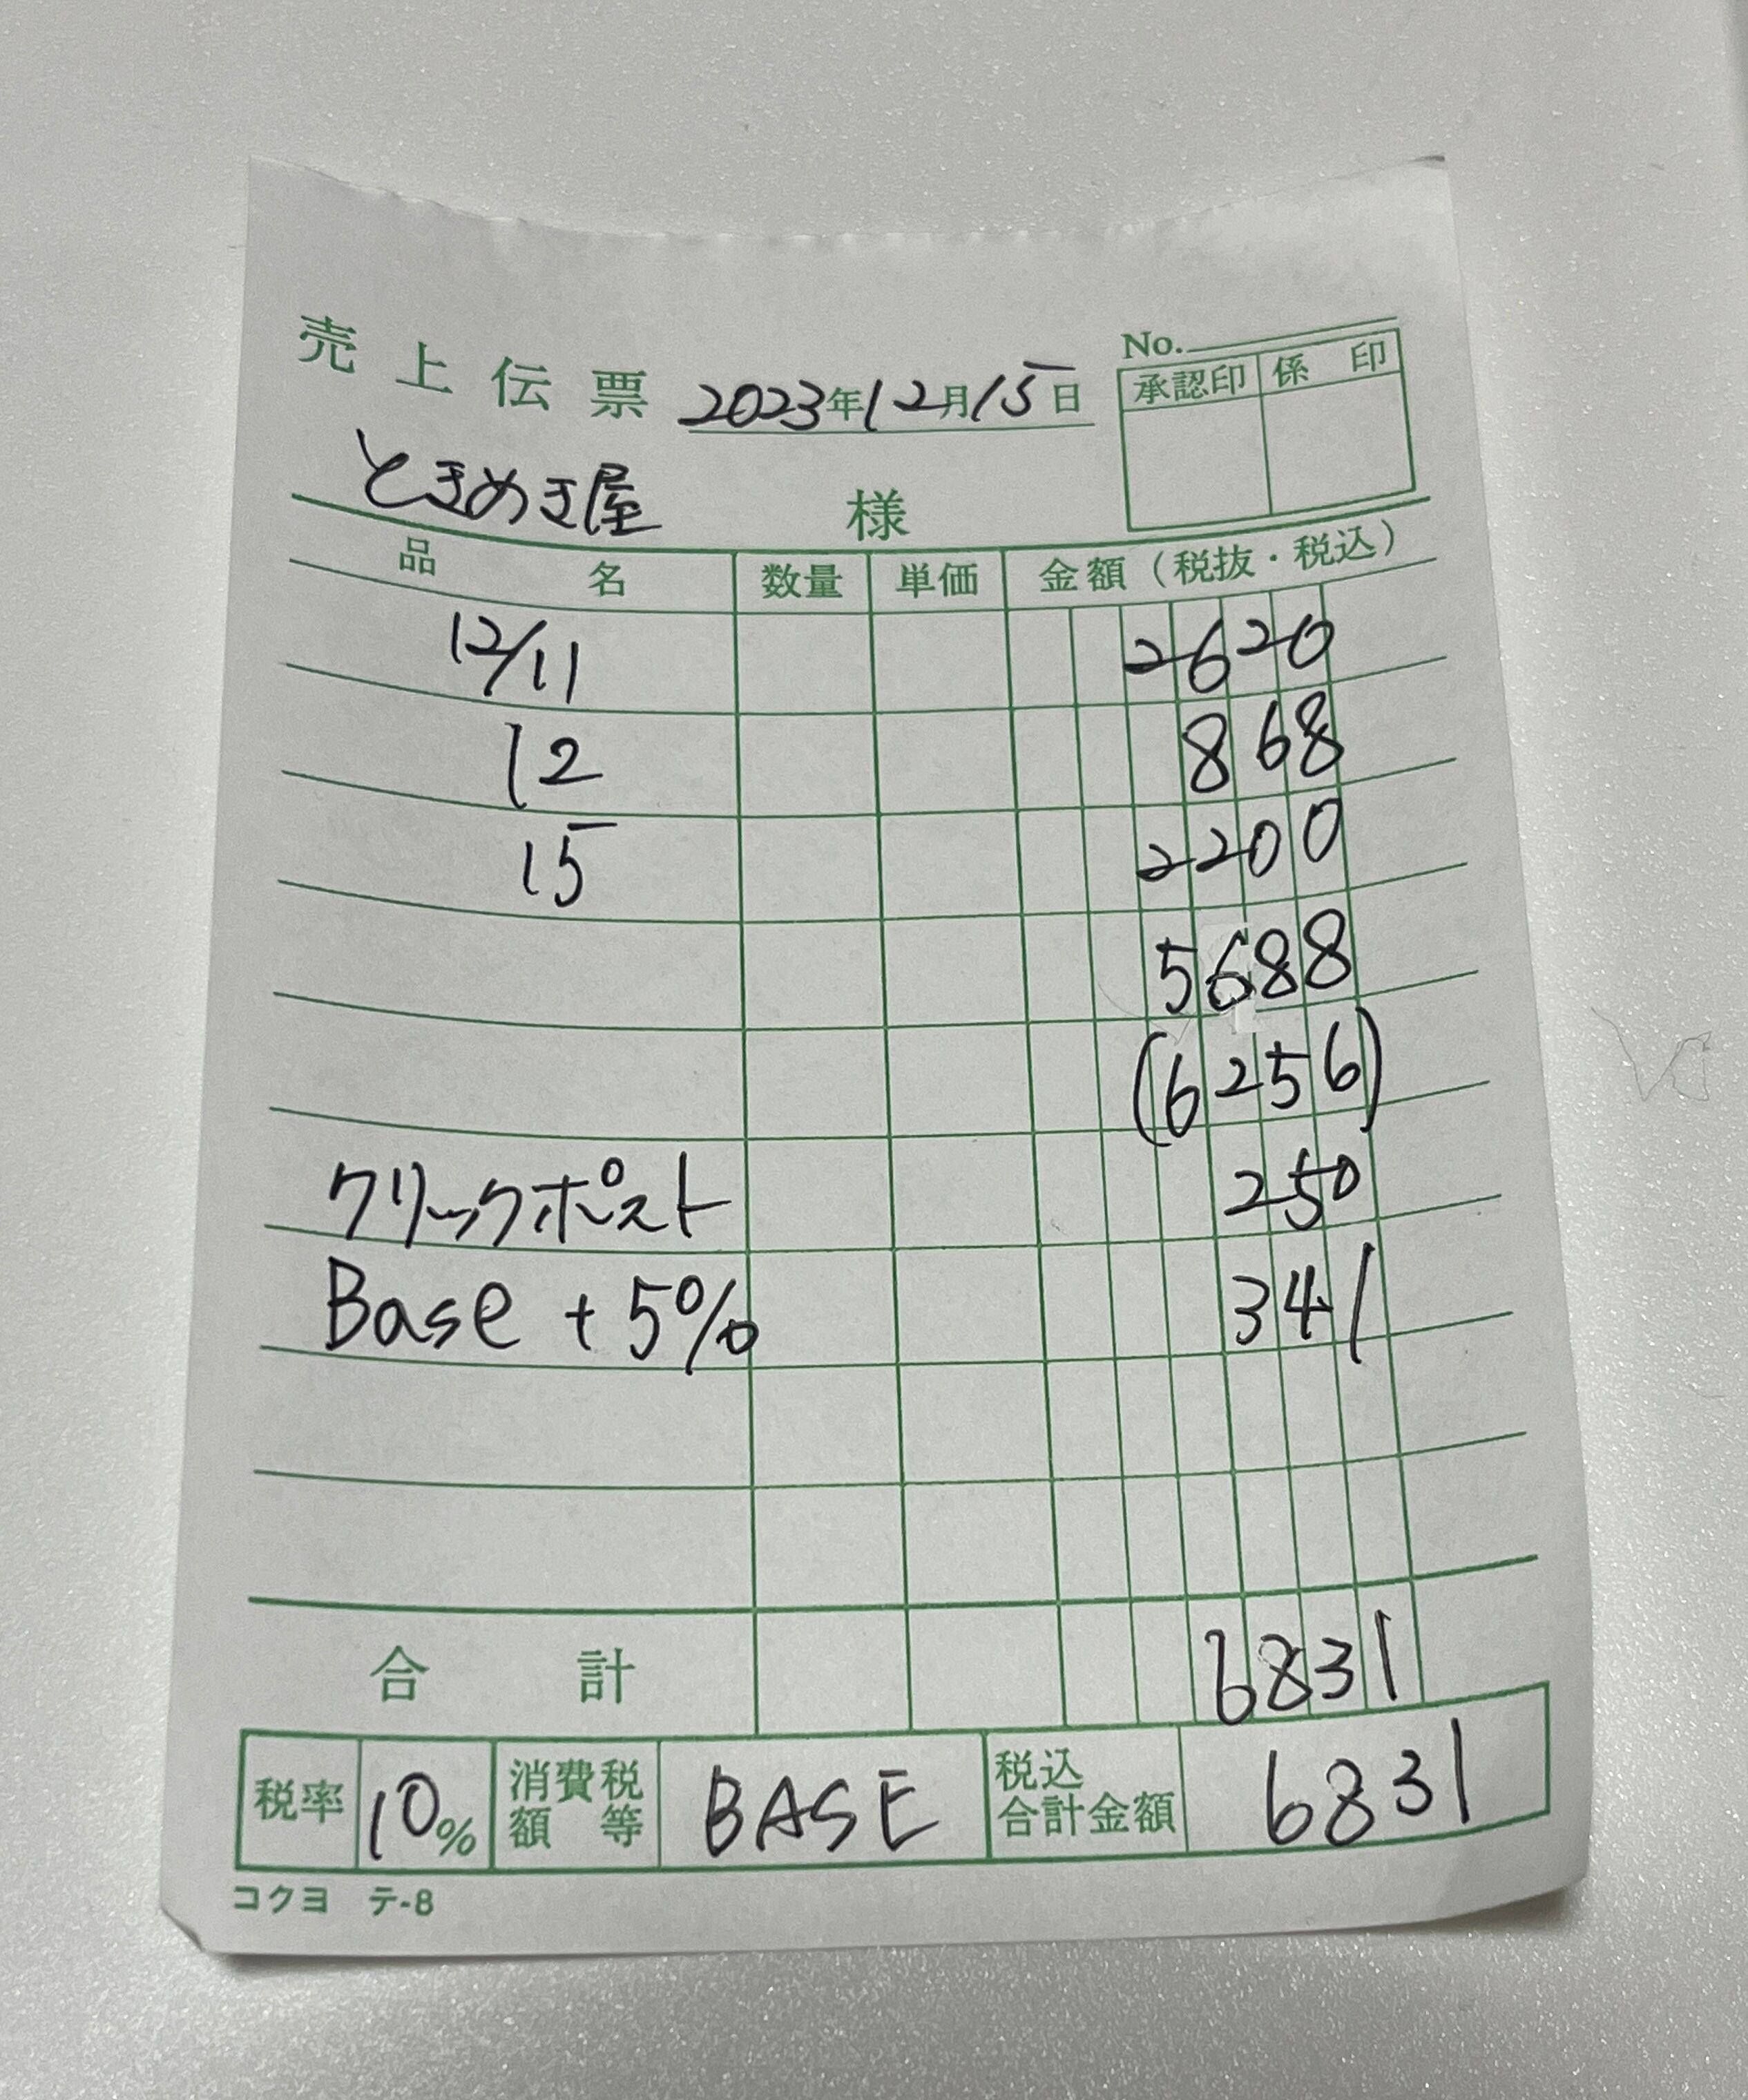 No.
売上伝票 2023年12月15日
承認印 係印
ときめき屋 様
品名 数量 単価 金額（税抜・税込）
12/11 2620
12 868
15 2200
5688
(6256)
クリックポスト 250
Base + 5% 341
合計 6831
税率 10% 消費税額等 BASE 税込合計金額 6831
コクヨ テ-8